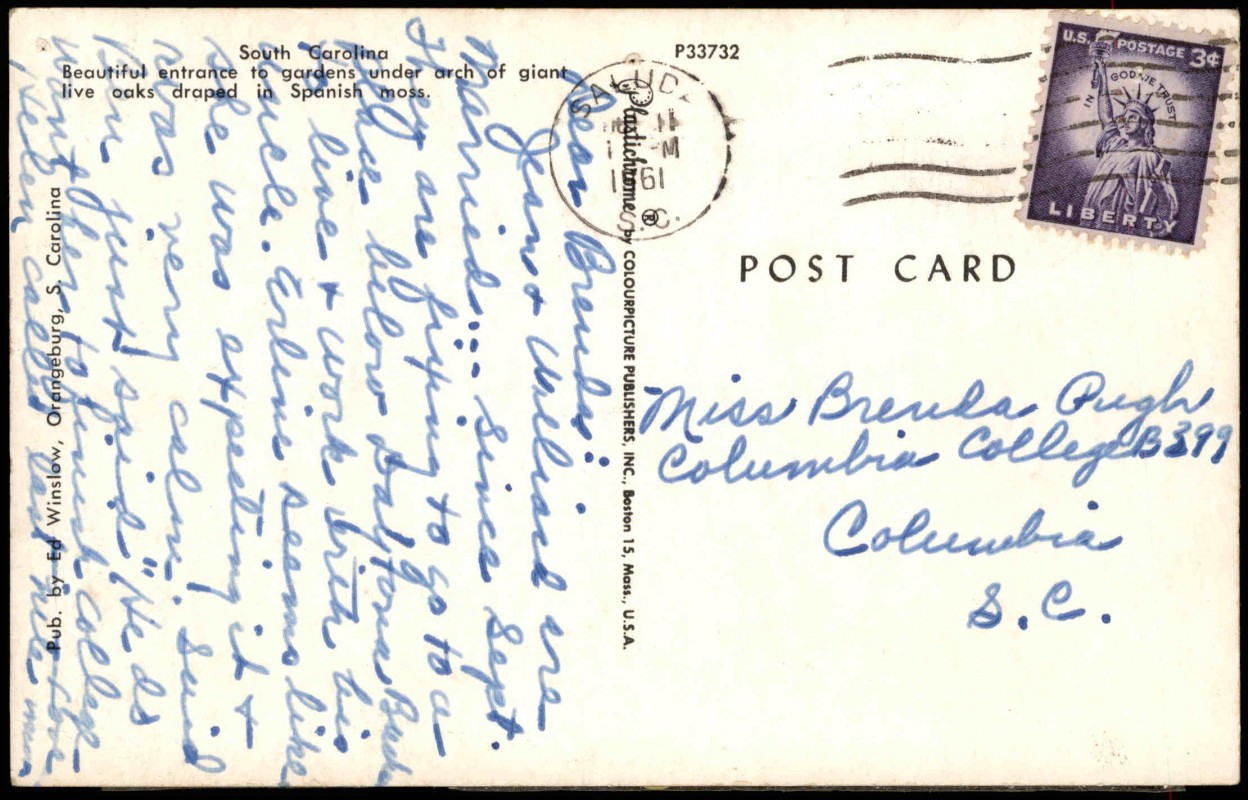 South Carolina
Beautiful entrance to gardens under arch of giant
live oaks draped in Spanish moss.
P33732
SALUDA
11
M
1961
S.C.
U.S. POSTAGE 3¢
IN GOD WE TRUST
LIBERTY
POST CARD
Dear Brenda:
Jean & Williard are
Married... Since Sept.
They are fixing to go to a
place below Daytona Beach
to live & work with his
uncle. Erline seems like
she was expecting it &
was very calm. Said
Ben just said "He ds
want her to finish college
Helen called last nite
Plastichrome® by COLOURPICTURE PUBLISHERS, INC., Boston 15, Mass., U.S.A.
Pub. by Ed Winslow, Orangeburg, S. Carolina
Miss Brenda Pugh
Columbia College B399
Columbia
S.C.